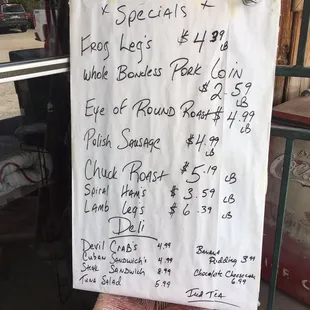 x Specials x
Frog Leg's $4.39 LB
Whole Boneless Pork Loin
$2.59 LB
Eye of Round Roast $4.99 LB
Polish Sausage $4.99 LB
Chuck Roast $5.19 LB
Spiral Ham's $3.59 LB
Lamb Leg's $6.39 LB
Deli
Devil Crab's 4.99
Cuban Sandwich's 4.99
Steak Sandwich 8.99
Tuna Salad 5.99
Banana
Pudding 3.99
Chocolate Cheesecake
6.99
Iced Tea